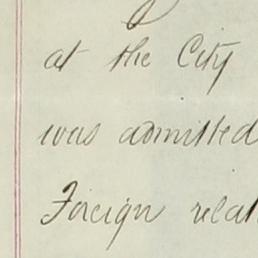 at the City
was admitted
Foreign relat